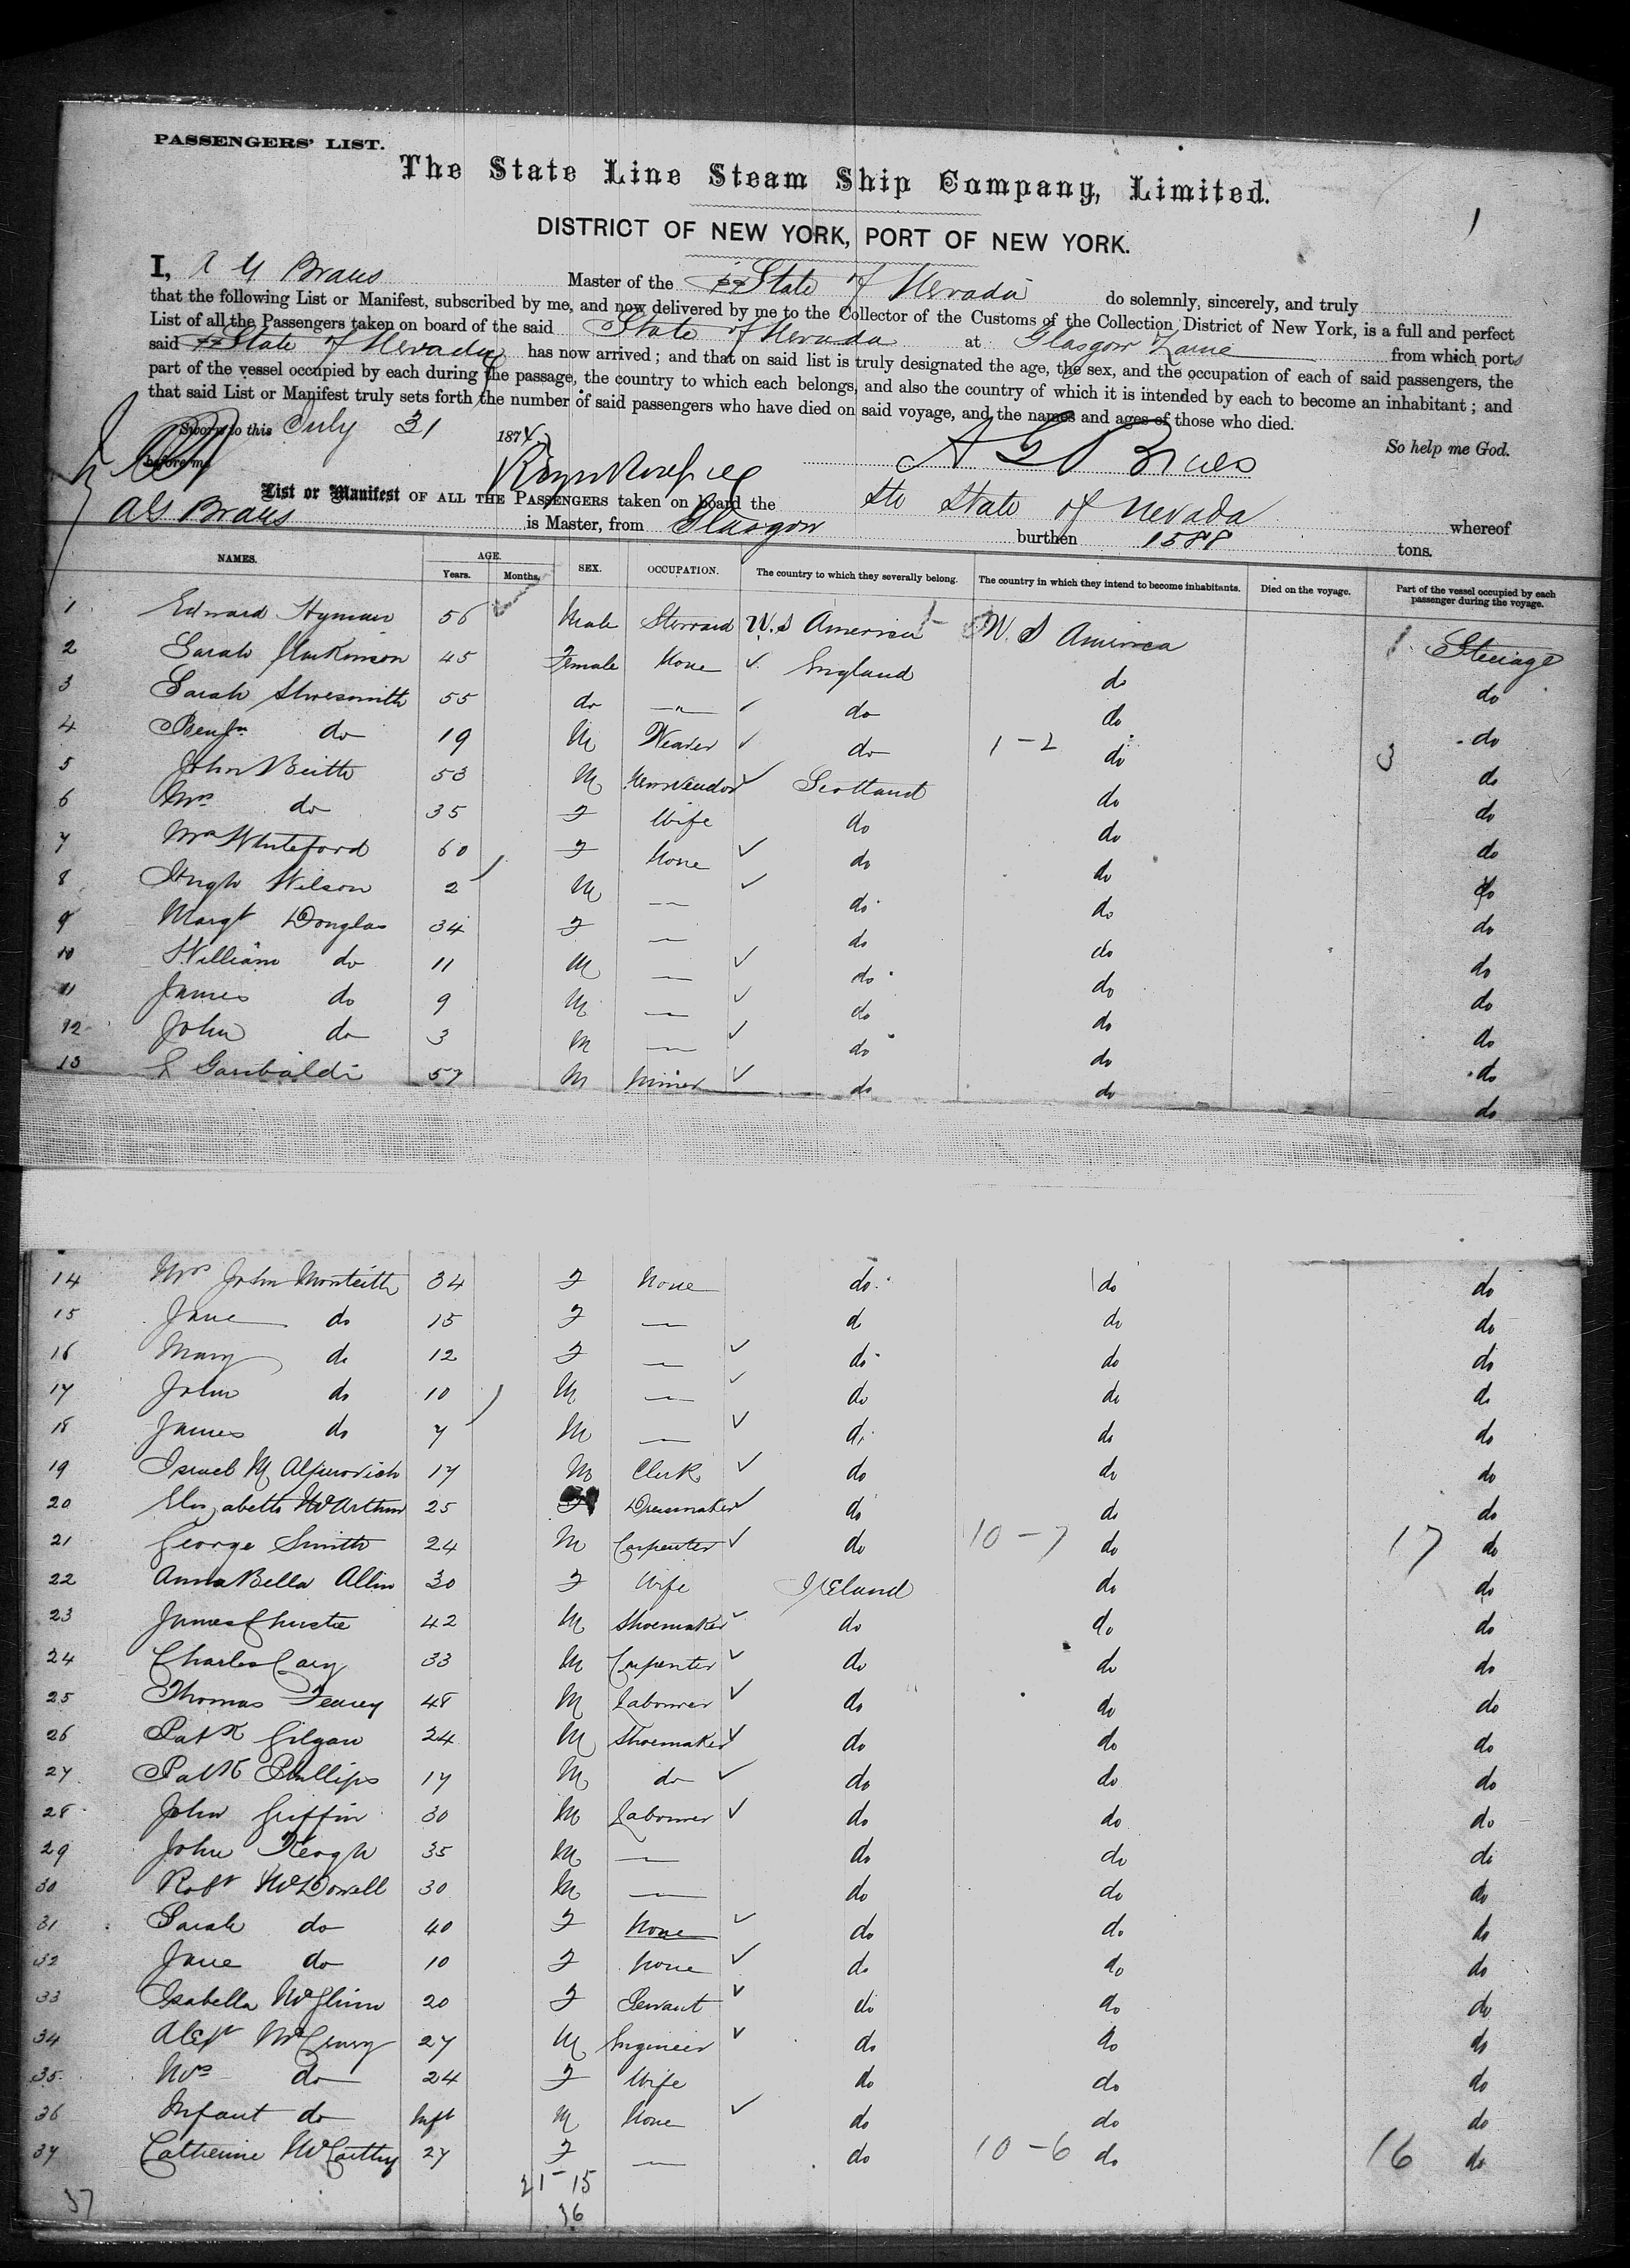 PASSENGERS' LIST.
The State Line Steam Ship Company, Limited.
1
DISTRICT OF NEW YORK, PORT OF NEW YORK.
I, A G Braes Master of the SS State of Nevada do solemnly, sincerely, and truly
that the following List or Manifest, subscribed by me, and now delivered by me to the Collector of the Customs of the Collection District of New York, is a full and perfect
List of all the Passengers taken on board of the said State of Nevada at Glasgow Larne from which ports
said SS State of Nevada has now arrived; and that on said list is truly designated the age, the sex, and the occupation of each of said passengers, the
part of the vessel occupied by each during the passage, the country to which each belongs, and also the country of which it is intended by each to become an inhabitant; and
that said List or Manifest truly sets forth the number of said passengers who have died on said voyage, and the names and ages of those who died.
Sworn to this July 31 1874 So help me God.
before me A G Braes
List or Manifest OF ALL THE PASSENGERS taken on board the Str State of Nevada whereof
AG Braes is Master, from Glasgow burthen 1588 tons.
NAMES. AGE. Years. Months. SEX. OCCUPATION. The country to which they severally belong. The country in which they intend to become inhabitants. Died on the voyage. Part of the vessel occupied by each passenger during the voyage.
1 Edward Hyman 56 Male Steward U.S America 1 U.S America 1 Steerage
2 Sarah 45 Female None England do do
3 Sarah Shoesmith 55 do " do do do
4 Benjn do 19 M Weaver do 1-2 do 3 do
5 John Beith 53 M Newsvendor Scotland do do
6 Mrs do 35 F Wife do do do
7 Mrs Whiteford 60 F None do do do
8 Hugh Wilson 2 M — do do do
9 Margt Douglas 34 F — do do do
10 William do 11 M — do do do
11 James do 9 M — do do do
12 John do 3 M — do do do
13 Garibaldi 57 M Miner do do do
14 Mrs John Monteith 34 F None do do do
15 Jane do 15 F — do do do
16 Mary do 12 F — do do do
17 John do 10 M — do do do
18 James do 7 M — do do do
19 Israel M 17 M Clerk do do do
20 Elizabeth McArthur 25 F Dressmaker do do do
21 George Smith 24 M Carpenter do 10-7 do 17 do
22 Anna Bella Allen 30 F Wife Ireland do do
23 James Christie 42 M Shoemaker do do do
24 Charles Cary 33 M Carpenter do do do
25 Thomas Feaney 48 M Labourer do do do
26 Patk Gilgan 24 M Shoemaker do do do
27 Patk Phillips 17 M do do do do
28 John Griffin 30 M Labourer do do do
29 John Keogh 35 M — do do do
30 Robt McDowell 30 M — do do do
31 Sarah do 40 F None do do do
32 Jane do 10 F None do do do
33 Isabella McGlinn 20 F Servant do do do
34 Alexr McCreary 27 M Engineer do do do
35 Mrs do 24 F Wife do do do
36 Infant do Inft M None do do do
37 Catherine McCarthy 27 F — do 10-6 do 16 do
21-15
37 36